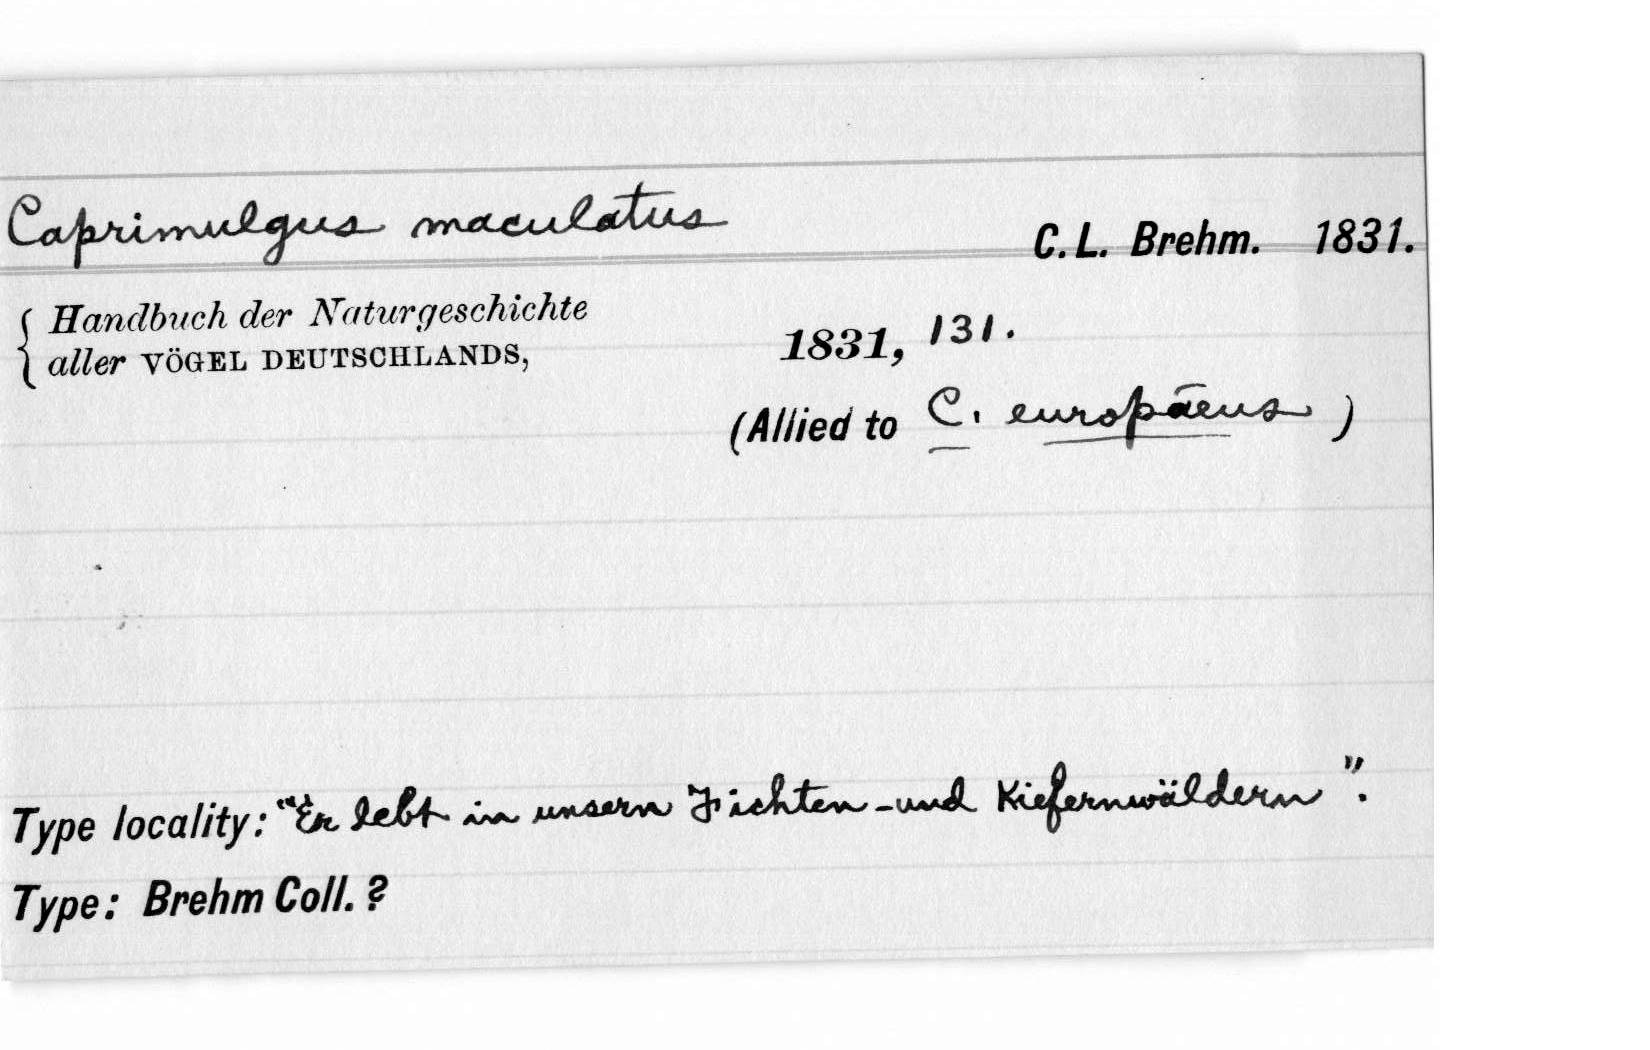 Caprimulgus maculatus C. L. Brehm. 1831.
Handbuch der Naturgeschichte
aller VÖGEL DEUTSCHLANDS, 1831, 131.
(Allied to C. europäeus)
Type locality: "Er lebt in unsern Fichten-und Kiefernwäldern".
Type: Brehm Coll. ?